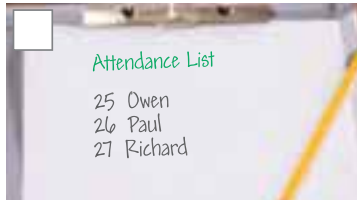 Attendance List
25 Owen
26 Paul
27 Richard